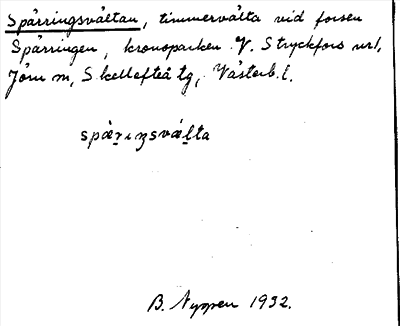 Spärringsvältan, timmervälta vid forsen
Spärringen, kronoparken V. Stryckfors url,
Jörn sn, Skellefteå tg, Västerb. l.
spærıŋsvælta
B. Nyppen 1932.